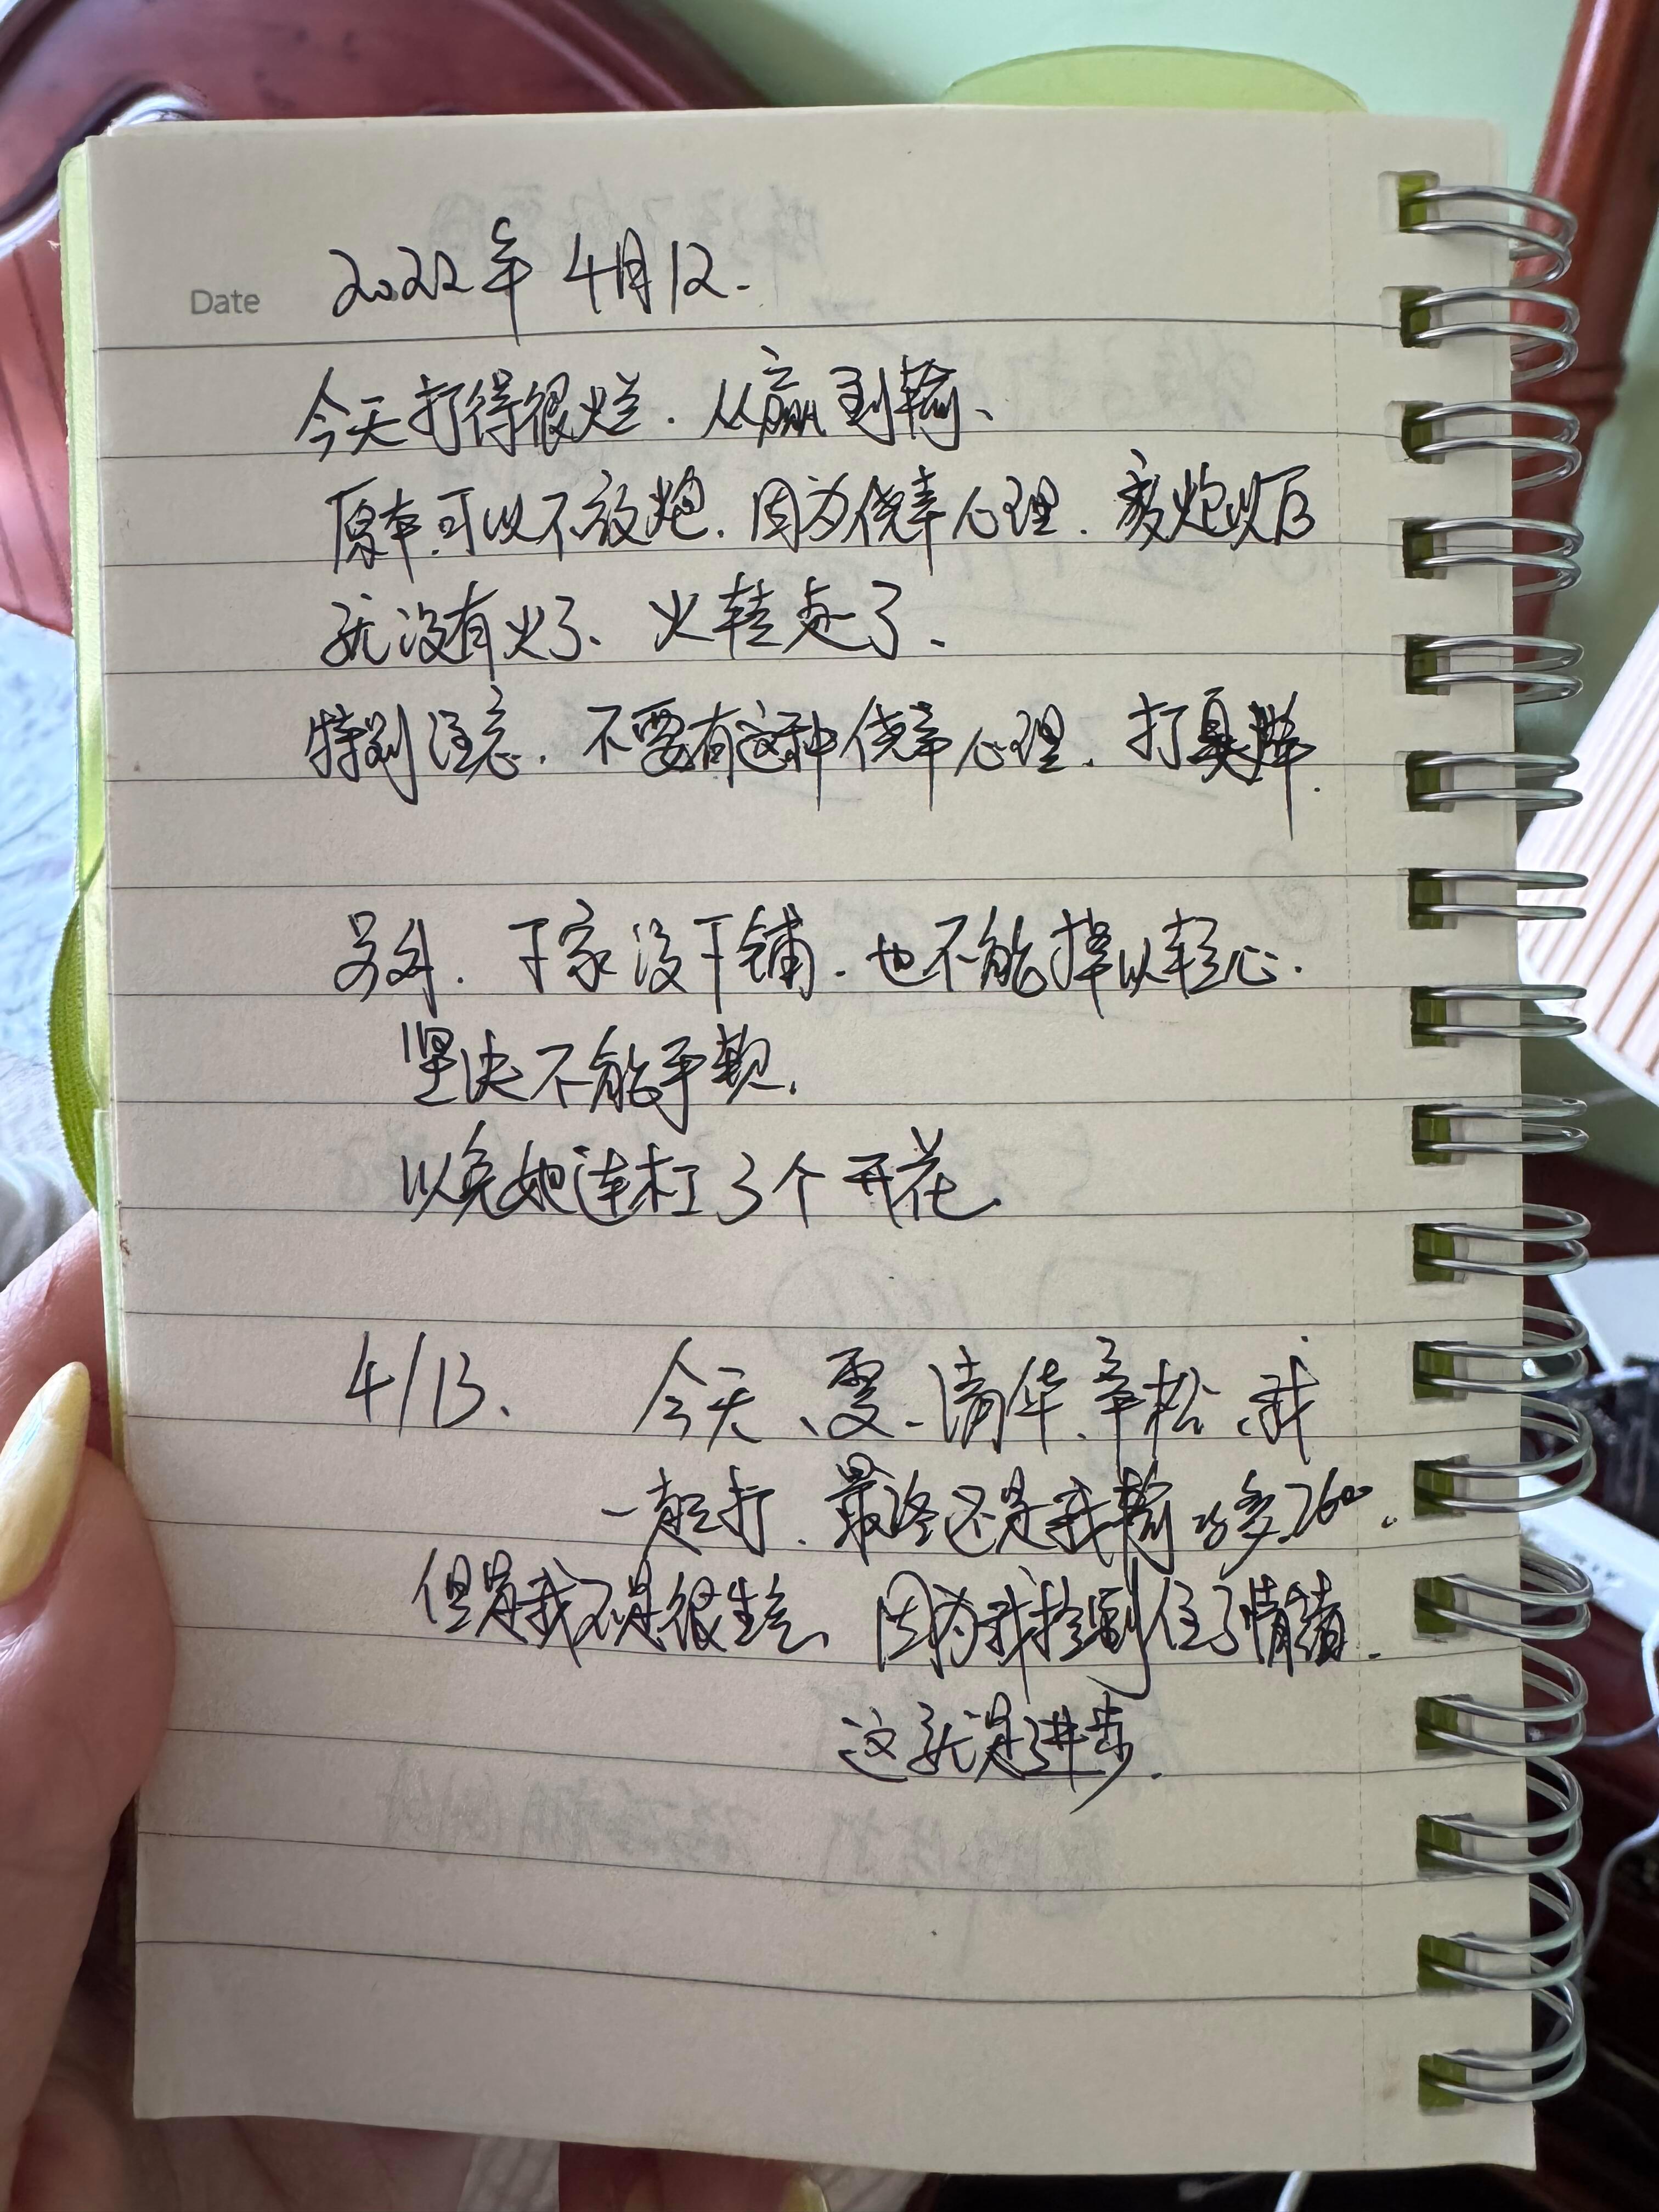 Date 2022年 4月12.
今天打得很烂. 从赢到输、
原本可以不放炮. 因为侥幸心理. 放炮以后
就没有火了、火转走了、
特别注意. 不要有这种侥幸心理. 打臭牌.
另外. 下家没下铺. 也不能掉以轻心.
坚决不能手软.
以免她连杠3个开花.
4/13、 今天、雯、清华、辛松、我
一起打. 最终还是我输 多2600.
但是我不是很生气、因为我控制住了情绪.
这就是进步.